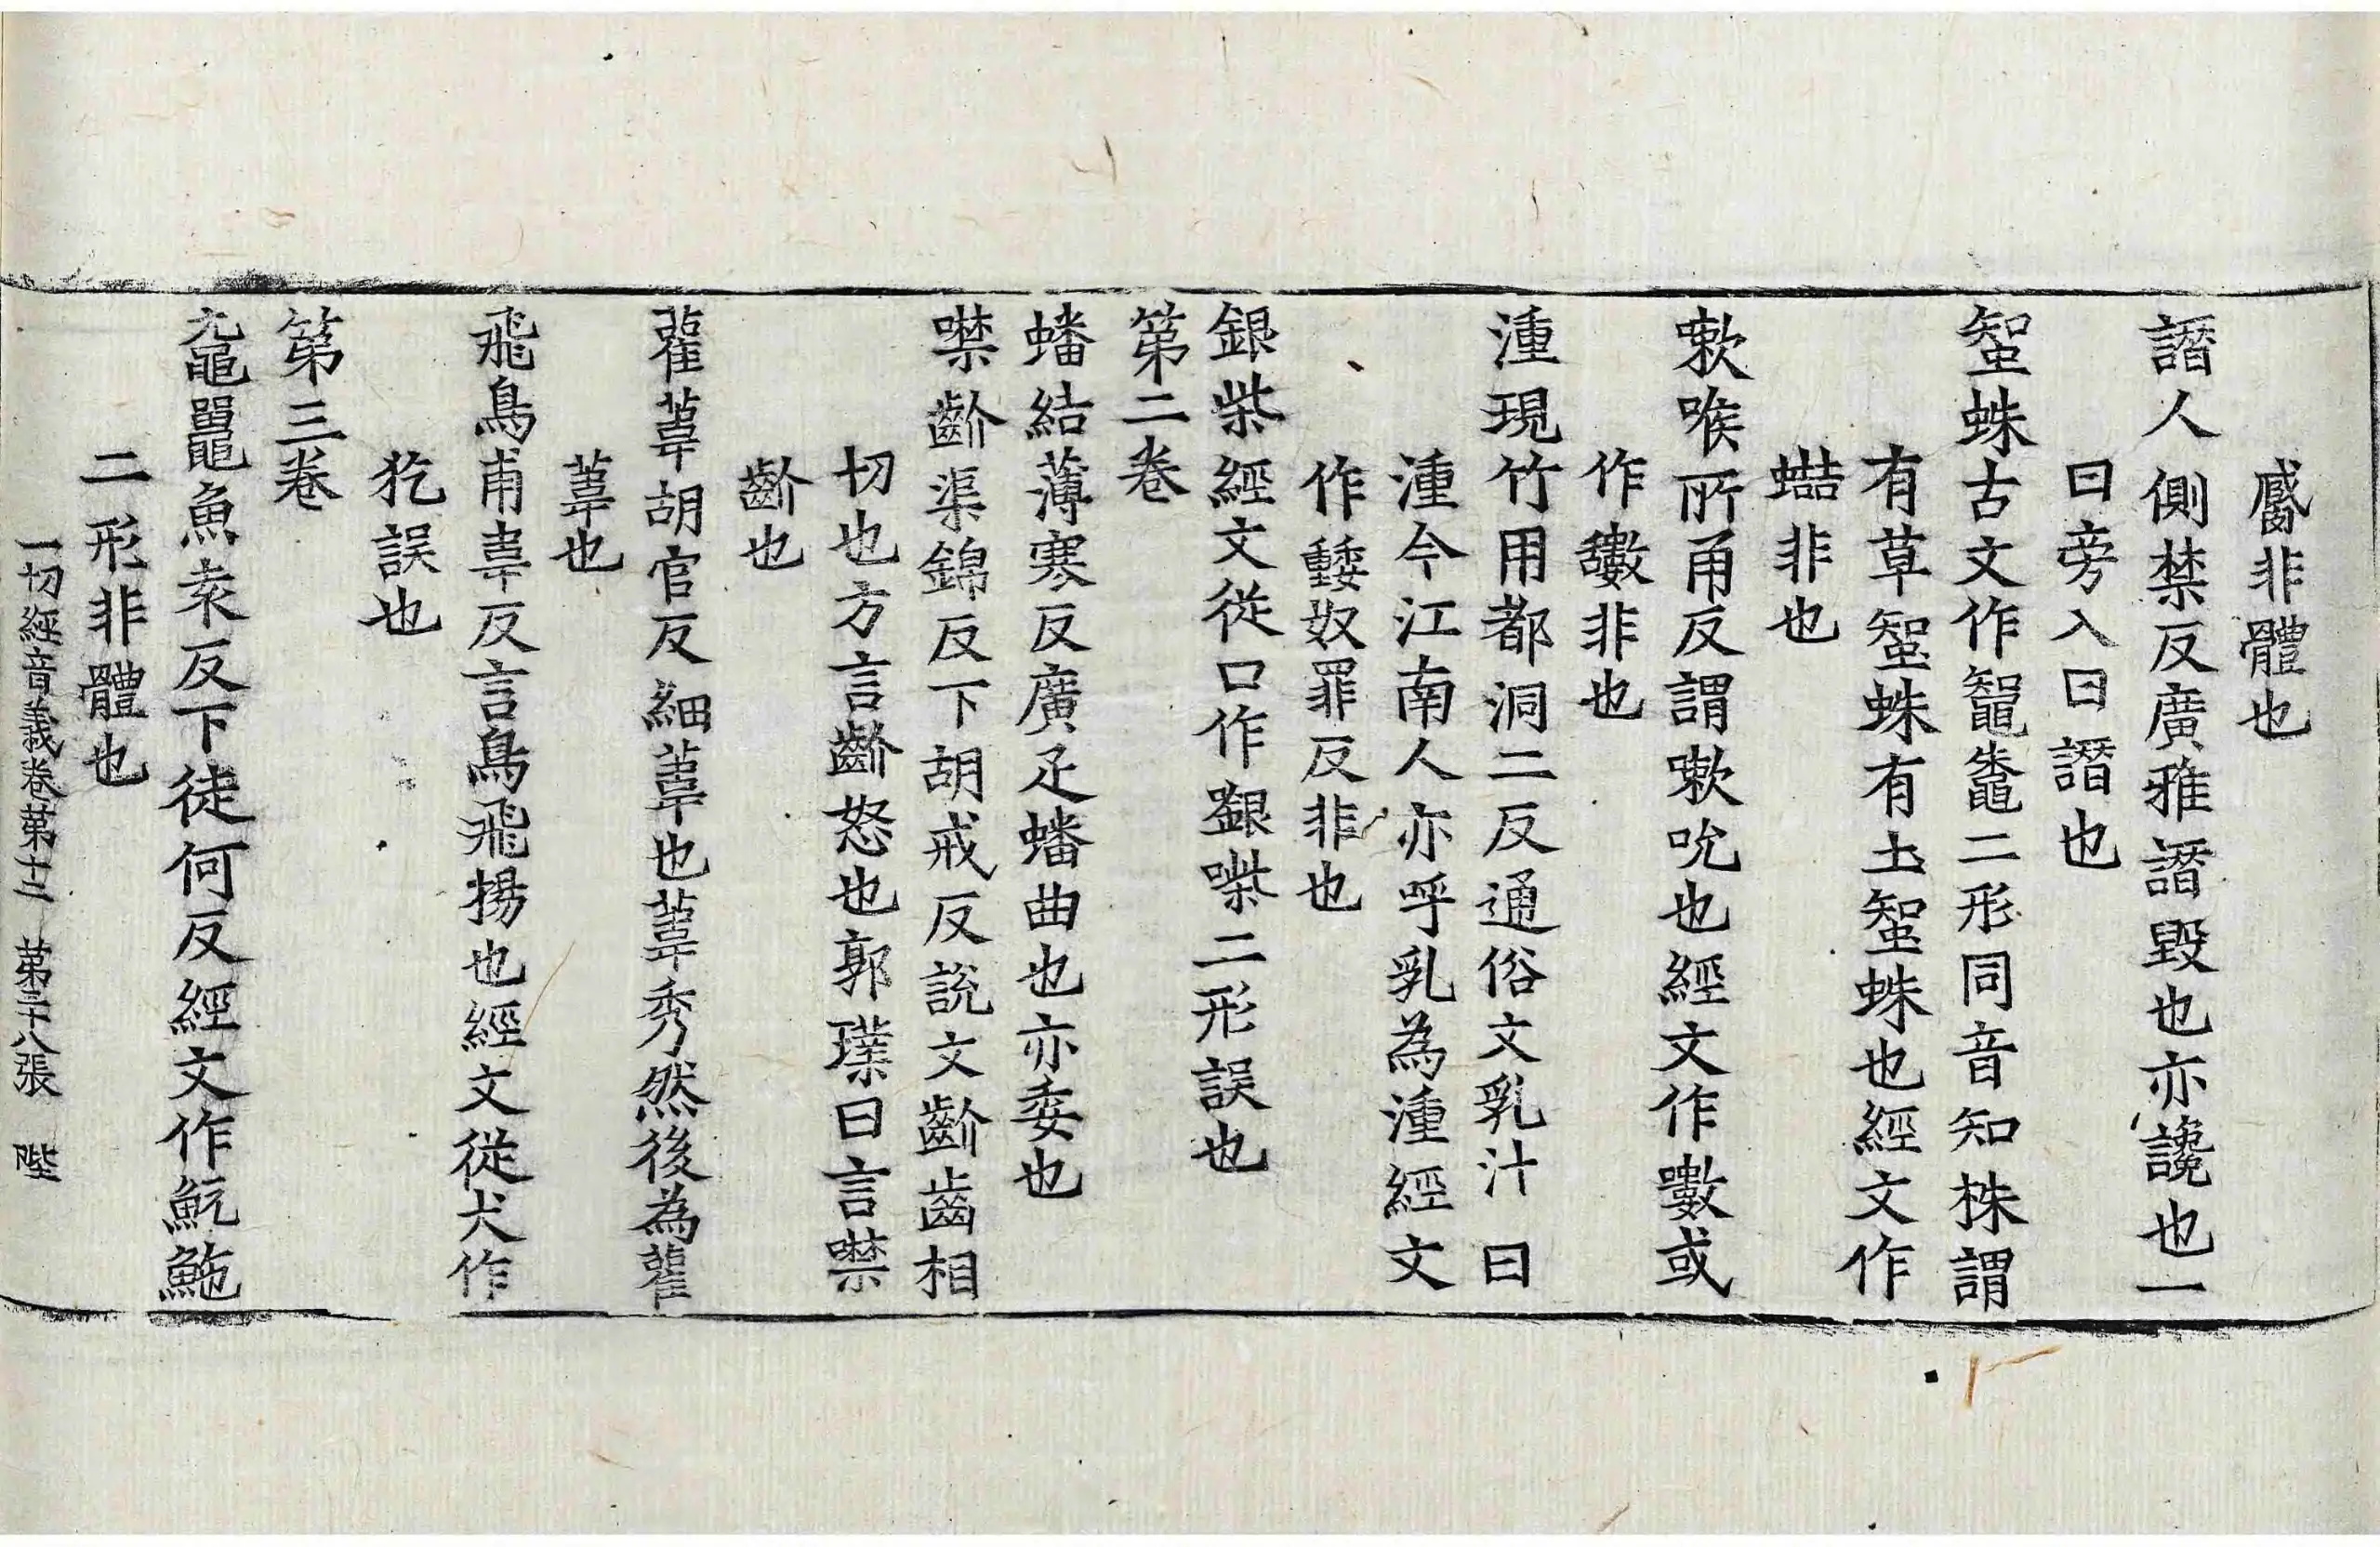 非體也
譖人側禁反廣雅譖毀也亦讒也一
曰旁入曰譖也
䖵蛛古文作鼅鼄二形同音知株謂
有草䖵蛛有土䖵蛛也經文作
非也
嗽喉所角反謂嗽吮也經文作㘔或
作非也
湩現竹用都洞二反通俗文乳汁曰
湩今江南人亦呼乳為湩經文
作奴罪反非也
銀柴經文從口作㗴二形誤也
第二卷
蟠結薄寒反廣疋蟠曲也亦委也
噤齘渠錦反下胡戒反說文齘齒相
切也方言齘怒也郭璞曰言噤
齘也
雚葦胡官反細葦也葦秀然後為雚
葦也
飛鳥甫韋反言鳥飛揚也經文從犬作
犵誤也
第三卷
黿鼉魚袁反下徒何反經文作魭鮀
二形非體也
一切經音義卷第十二 第三十八張 陛